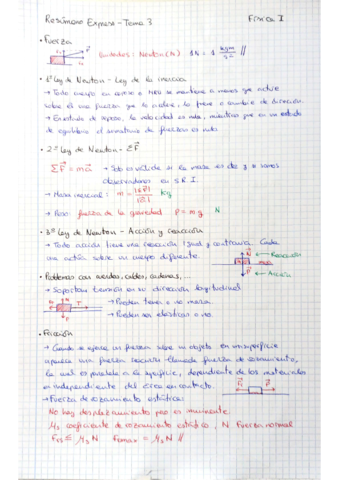 Resúmenes Express - Tema 3 Física I
• Fuerza
Unidades: Newton (N) 1N = 1 kg m / s² //
• 1ª Ley de Newton - Ley de la inercia
→ Todo cuerpo en reposo o MRU se mantiene a menos que actúe
sobre él una fuerza que lo acelere, lo frene o cambie de dirección.
→ En estado de reposo, la velocidad es nula, mientras que en un estado
de equilibrio el sumatorio de fuerzas es nulo.
• 2ª Ley de Newton - ΣF
ΣF = ma → Solo es válida si la masa es cte y si somos
observadores en S.R.I.
→ Masa inercial: m = |ΣF| / |a| kg
→ Peso: fuerza de la gravedad P = m g N
• 3ª Ley de Newton - Acción y reacción
→ Toda acción tiene una reacción igual y contraria. Cada
una actúa sobre un cuerpo diferente.
N ← Reacción
P ← Acción
• Problemas con cuerdas, cables, cadenas, ...
→ Soportan tensión en su dirección longitudinal
N T
→ Pueden tener o no masa.
P
→ Pueden ser elásticas o no.
• Fricción
→ Cuando se ejerce una fuerza sobre un objeto en una superficie
aparece una fuerza reacción llamada fuerza de rozamiento,
la cual es paralela a la superficie, dependiente de los materiales
e independiente del área en contacto.
→ Fuerza de rozamiento estática:
No hay desplazamiento pero es inminente.
μs coeficiente de rozamiento estático, N Fuerza normal
Frs ≤ μs N Fsmax = μs N //